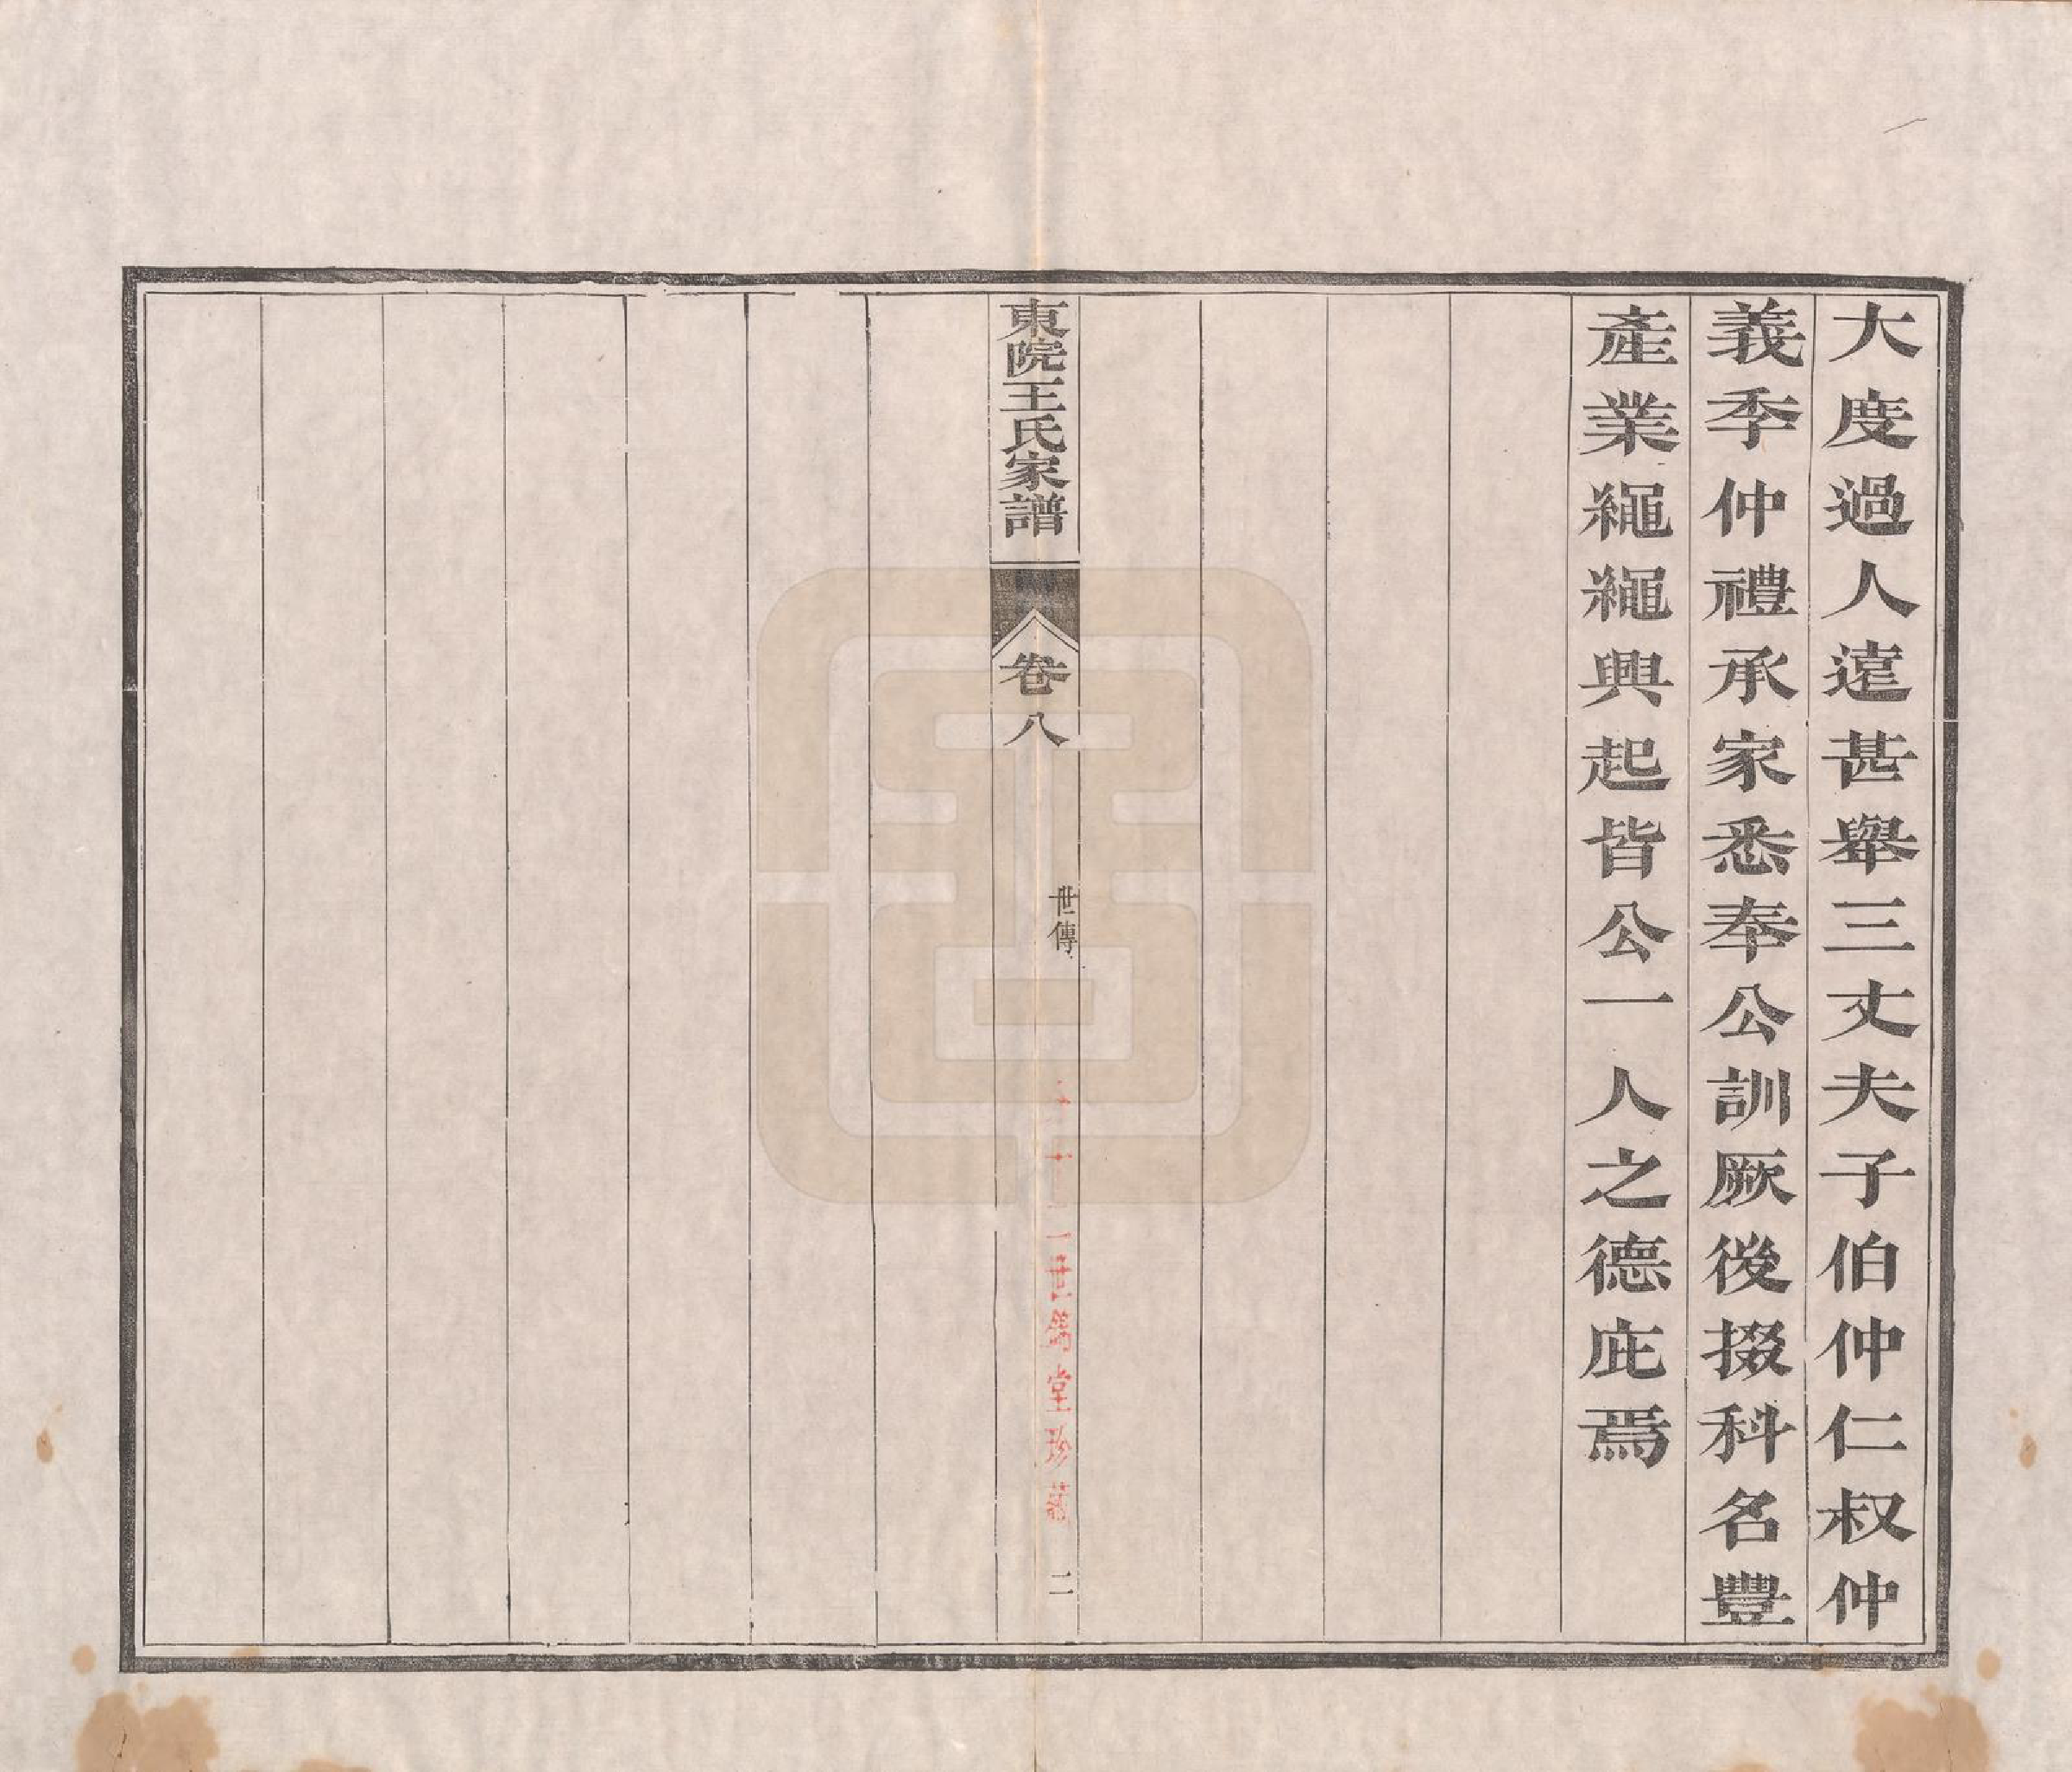 大度過人遠甚舉三丈夫子伯仲仁叔仲
義季仲禮承家悉奉公訓厥後掇科名豐
產業繩繩興起皆公一人之德庇焉
東院王氏家譜
卷八
世傳
世爲堂珍藏
二